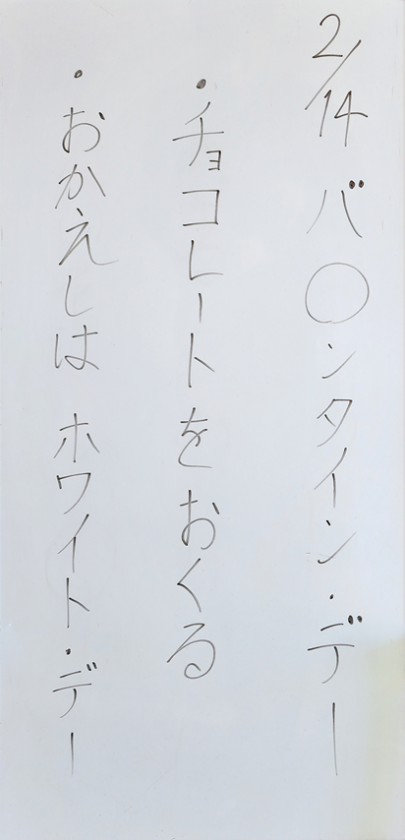 2/14 バ○ンタイン・デー
・チョコレートをおくる
・おかえしは ホワイト・デー